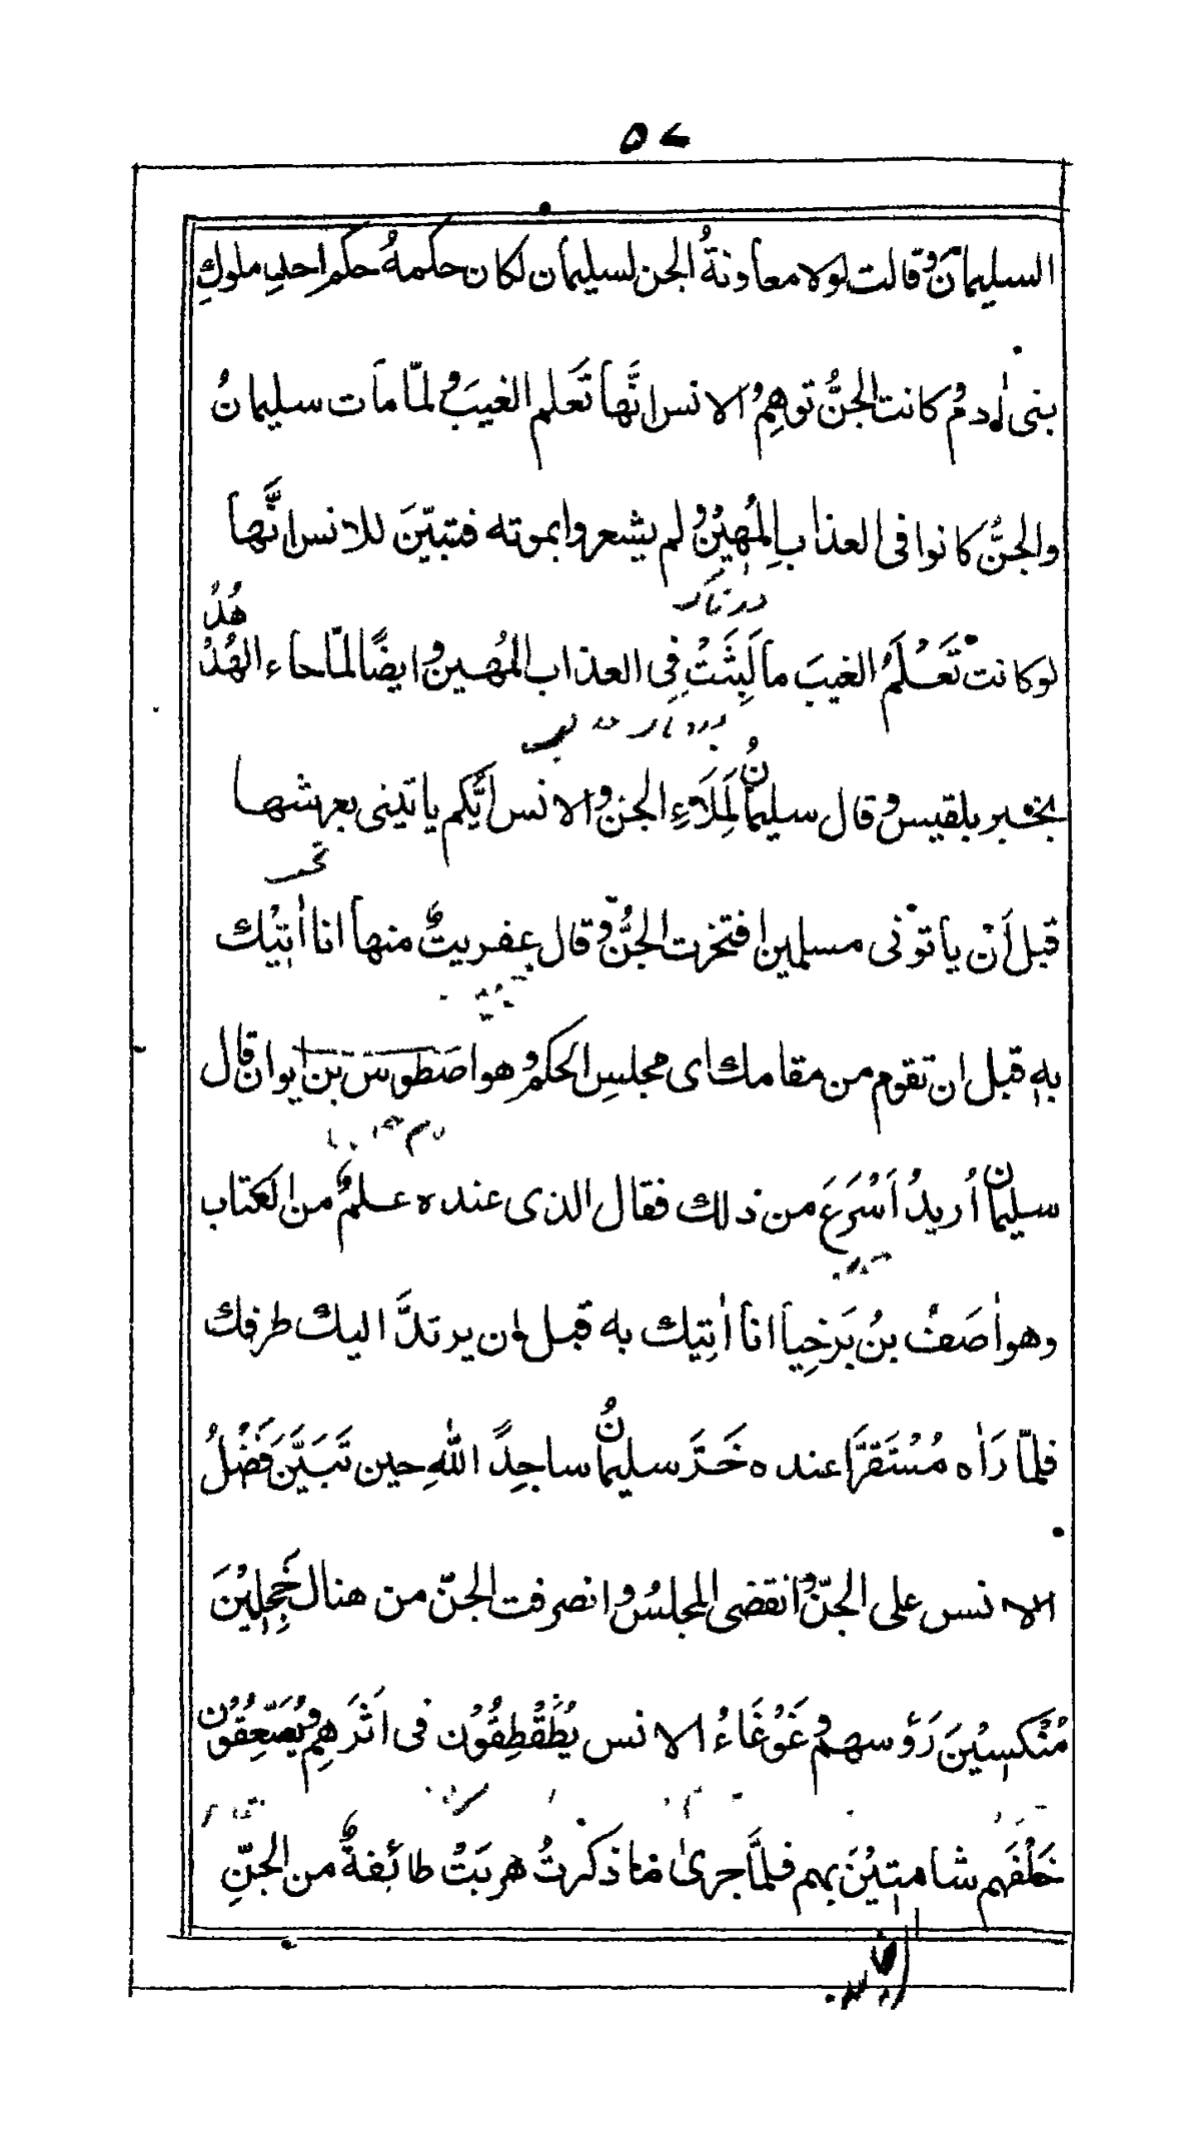 السليمان وقالت لولا معاونةُ الجن لسليمان لكان حكمهُ حكم احدٍ ملوكِ
بنى اٰدم وكانت الجنُّ توهِم الانس انَّها تَعلم الغيبَ ولمّا مات سليمانُ
والجنُّ كانوا فى العذابِ المُهِيْن ولم يشعروا بموته فتبيّنَ للانس انَّها
لو كانتْ تَعْلَمُ الغيبَ ما لَبِثَتْ فِى العذاب المُهين وايضًا لمّا جاء الهُدْهُدُ
بخبر بلقيس وقال سليمانُ لِمَلَاءِ الجن والانس اَيُّكم ياتينى بعرشها
قبل اَنْ ياتوْنى مسلمين افتخرت الجنُّ وقال عفريتٌ منها انا اٰتِيْك
بهٖ قبل ان تقوم من مقامك اى مجلسِ الحكم وهو اصَطوس بن ايوان قال
سليمان اُريدُ اَسْرَعَ من ذلك فقال الذى عنده علمٌ من الكتاب
وهو اٰصَفُ بنُ بَرَخِيا انا اٰتِيك به قبل ان يرتدَّ اليك طرفك
فلمّا رَاٰه مُسْتَقرًّا عنده خَرَّ سليمانُ ساجِدًا للهِ حين تَبَيَّنَ فَضْلُ
الانس على الجنّ وانقضى المجلسُ وانصرفت الجنّ من هنال خَجِلِيْنَ
مُنْكسِيْنَ رَؤسهم وغَوْغَاءُ الانس يُطَقْطِقُوْن فى اَثَرَهِم ويُصَعِقُوْن
خَلْفَهم شامتِيْنَ بهم فلمَّا جرىٰ ما ذكرتُ هربَتْ طائفةٌ من الجنِّ